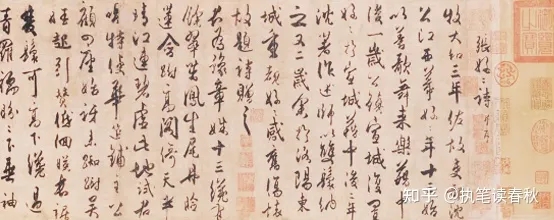 張好好詩并序
牧大和三年佐故吏部沈
公江西幕好好年十三始
以善歌舞來樂籍中
後一歲公鎮宣城復置
好好於宣城籍中後二年
沈著作述師以雙鬟納
之又二歲余於洛陽東
城重覩好好感舊傷懷
故題詩贈之
君為豫章姝十三纔有
餘翠茁鳳生尾丹臉
蓮含跗高閣倚天半
晴江連碧虛此地試君
唱特使華筵鋪主公
顧四座始訝來踟躕吳
娃起引贊低佪映長裾
雙鬟可高下纔過
青羅襦盼盼下垂袖
知乎 @执笔读春秋